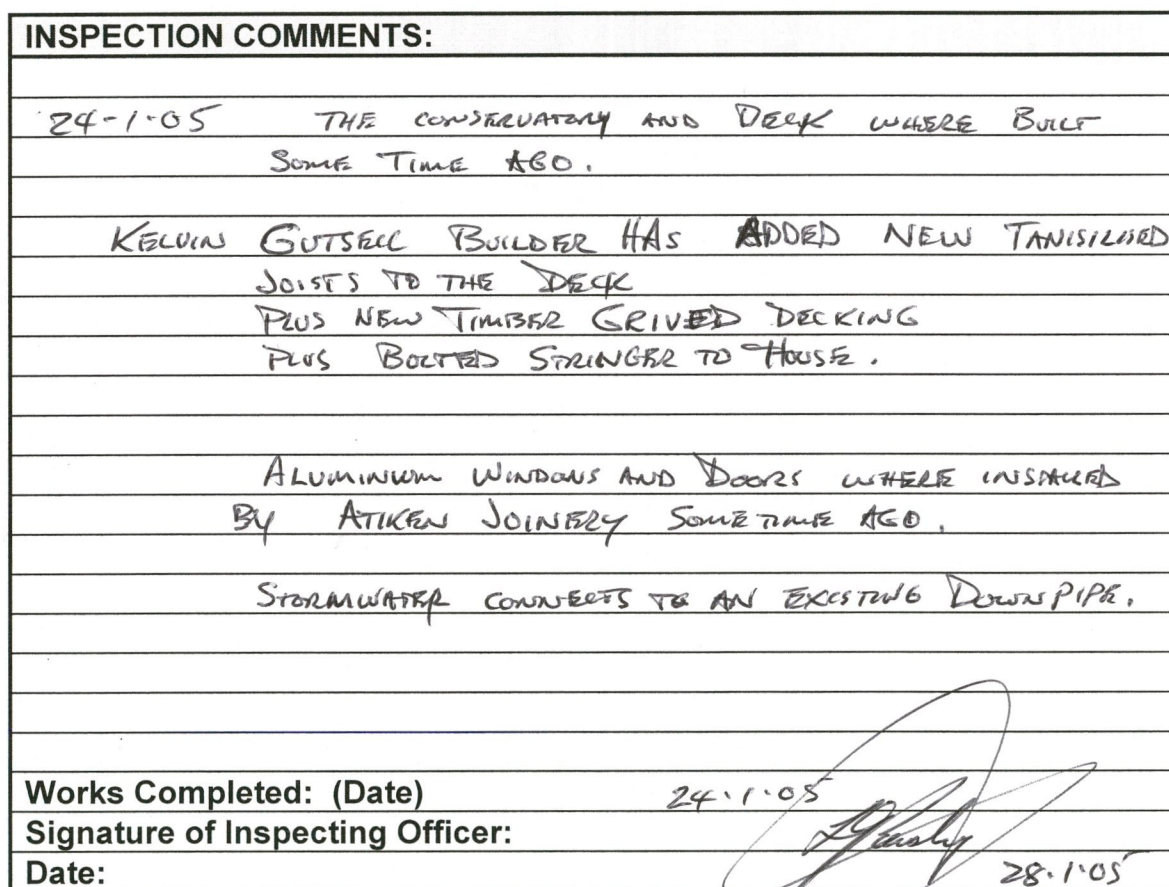 INSPECTION COMMENTS:
24-1-05 THE CONSERVATORY AND DECK WHERE BUILT
SOME TIME AGO.
KELVIN GUTSELL BUILDER HAS ADDED NEW TANISILISED
JOISTS TO THE DECK
PLUS NEW TIMBER GRIVED DECKING
PLUS BOLTED STRINGER TO HOUSE.
ALUMINIUM WINDOWS AND DOORS WHERE INSTALLED
BY ATIKEN JOINERY SOMETIME AGO.
STORMWATER CONNECTS TO AN EXISTING DOWNPIPE.
Works Completed: (Date) 24.1.05
Signature of Inspecting Officer:
Date: 28.1.05